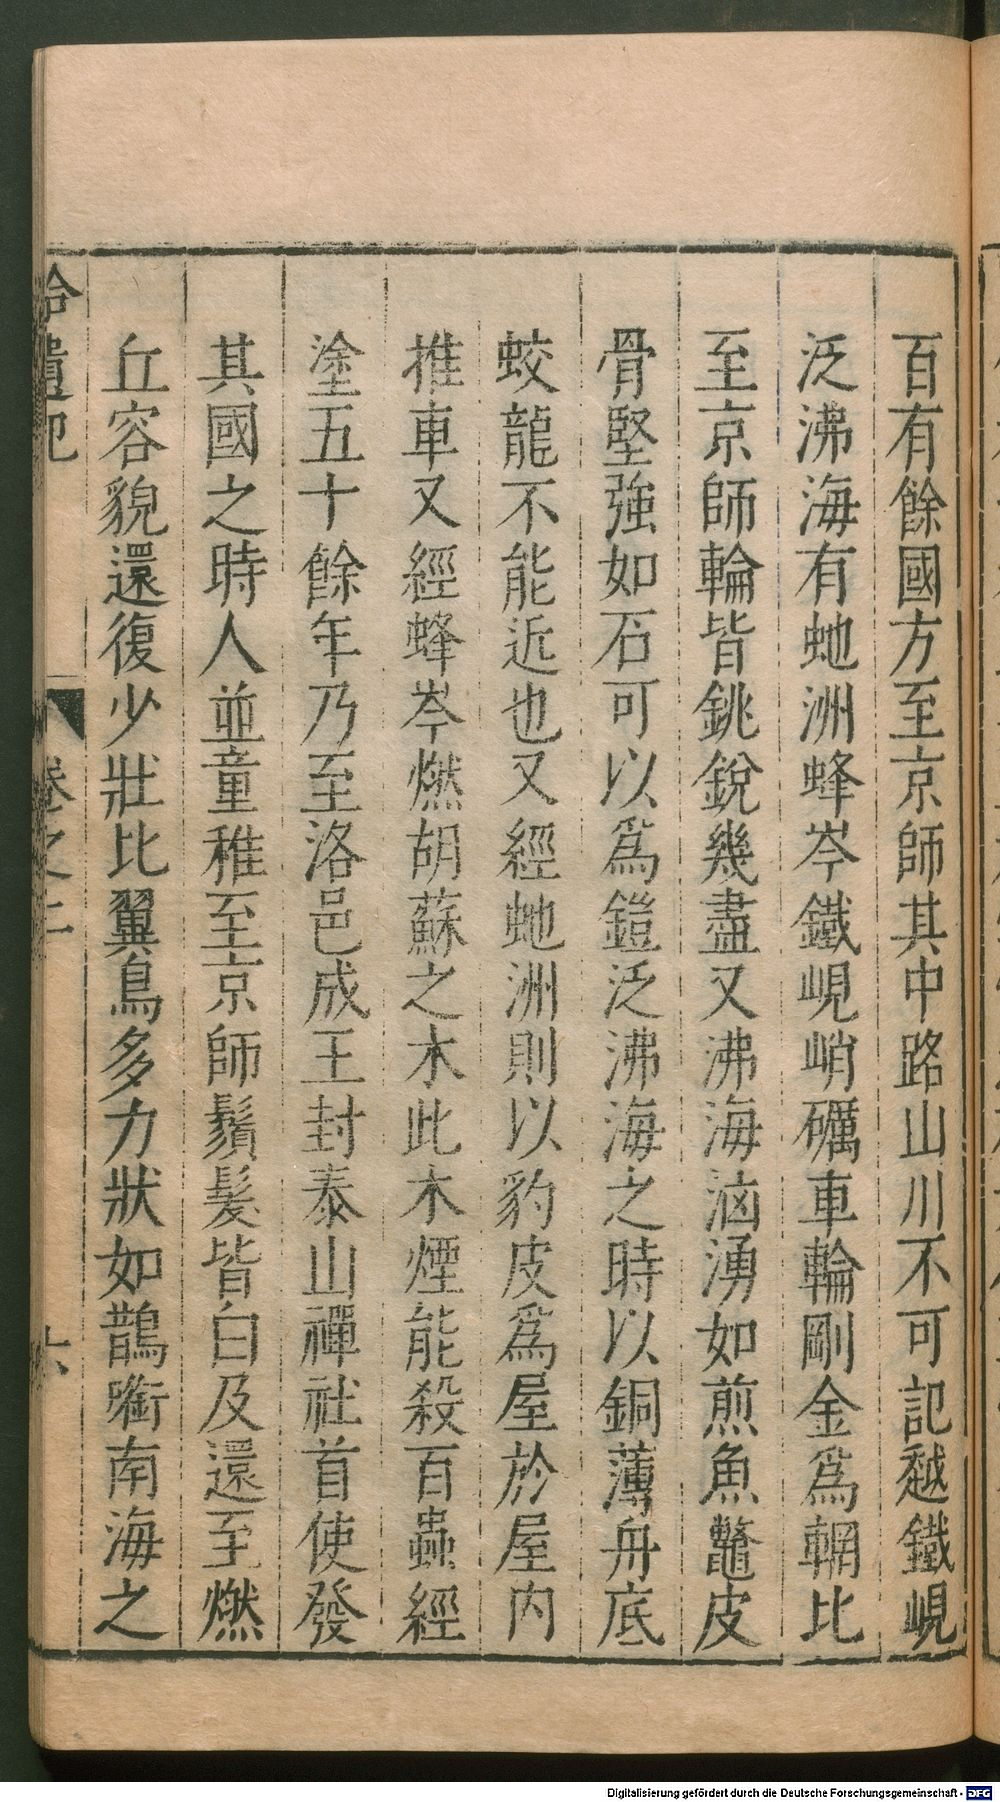 百有餘國方至京師其中路山川不可記越鐵峴
泛沸海有虵洲蜂岑鐵峴峭礪車輪剛金爲輞比
至京師輪皆銚銳幾盡又沸海洶湧如煎魚鼈皮
骨堅強如石可以爲鎧泛沸海之時以銅薄舟底
蛟龍不能近也又經虵洲則以豹皮爲屋於屋內
推車又經蜂岑燃胡蘇之木此木煙能殺百蟲經
塗五十餘年乃至洛邑成王封泰山禪社首使發
其國之時人並童稚至京師鬚髮皆白及還至燃
丘容貌還復少壯比翼鳥多力狀如鵲銜南海之
拾遺記 卷之二 六
Digitalisierung gefördert durch die Deutsche Forschungsgemeinschaft - DFG